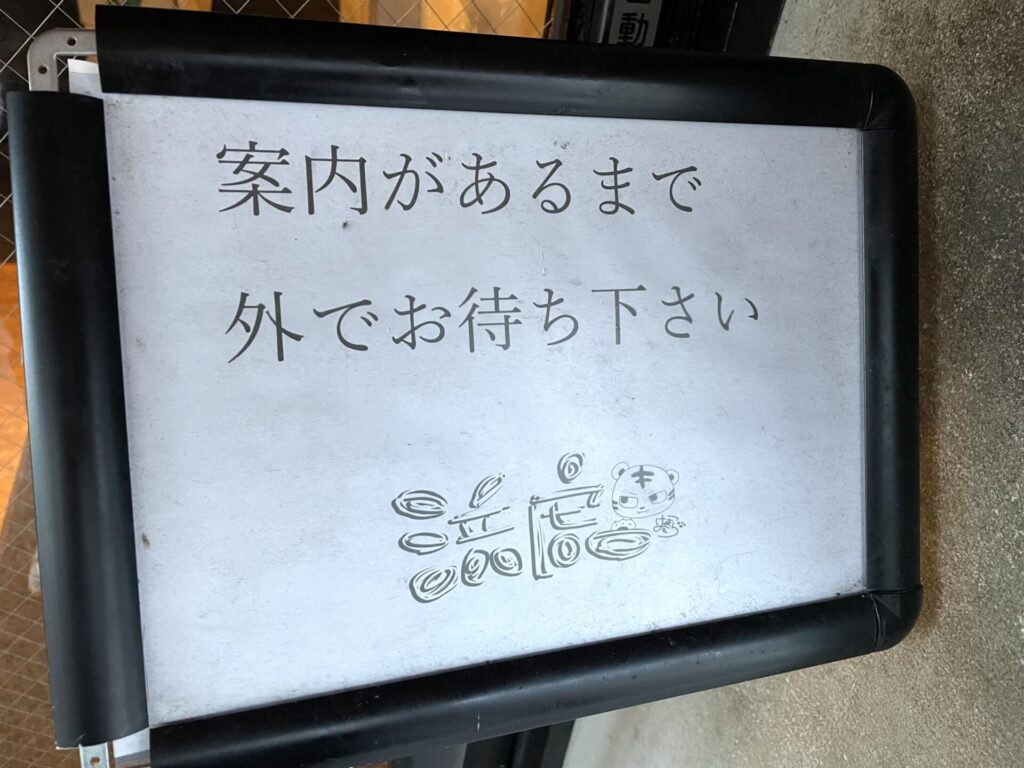 動
案内があるまで
外でお待ち下さい